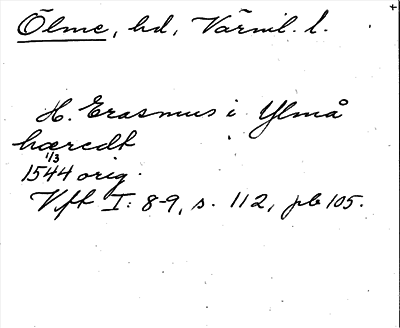 Ölme, hd, Värml. l.
H. Erasmus i Ylmå
hæredt
1/3
1544 orig.
Vft I: 8-9, s. 112, pb 105.